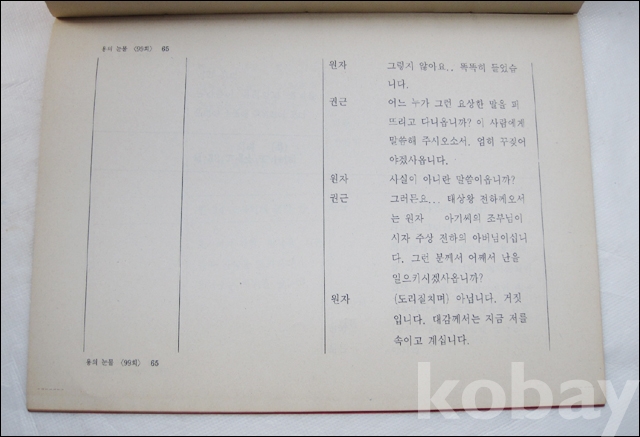 용의 눈물 (99회) 65
원자 그렇지 않아요.. 똑똑히 들었습
니다.
권근 어느 누가 그런 요상한 말을 퍼
뜨리고 다니옵니까? 이 사람에게
말씀해 주시오소서. 엄히 꾸짖어
야겠사옵니다.
원자 사실이 아니란 말씀이옵니까?
권근 그러든요... 태상왕 전하께오서
는 원자 아기씨의 조부님이
시자 주상 전하의 아버님이십니
다. 그런 분께서 어째서 난을
일으키시겠사옵니까?
원자 (도리질치며) 아닙니다. 거짓
입니다. 대감께서는 지금 저를
속이고 계십니다.
용의 눈물 (99회) 65
kobay